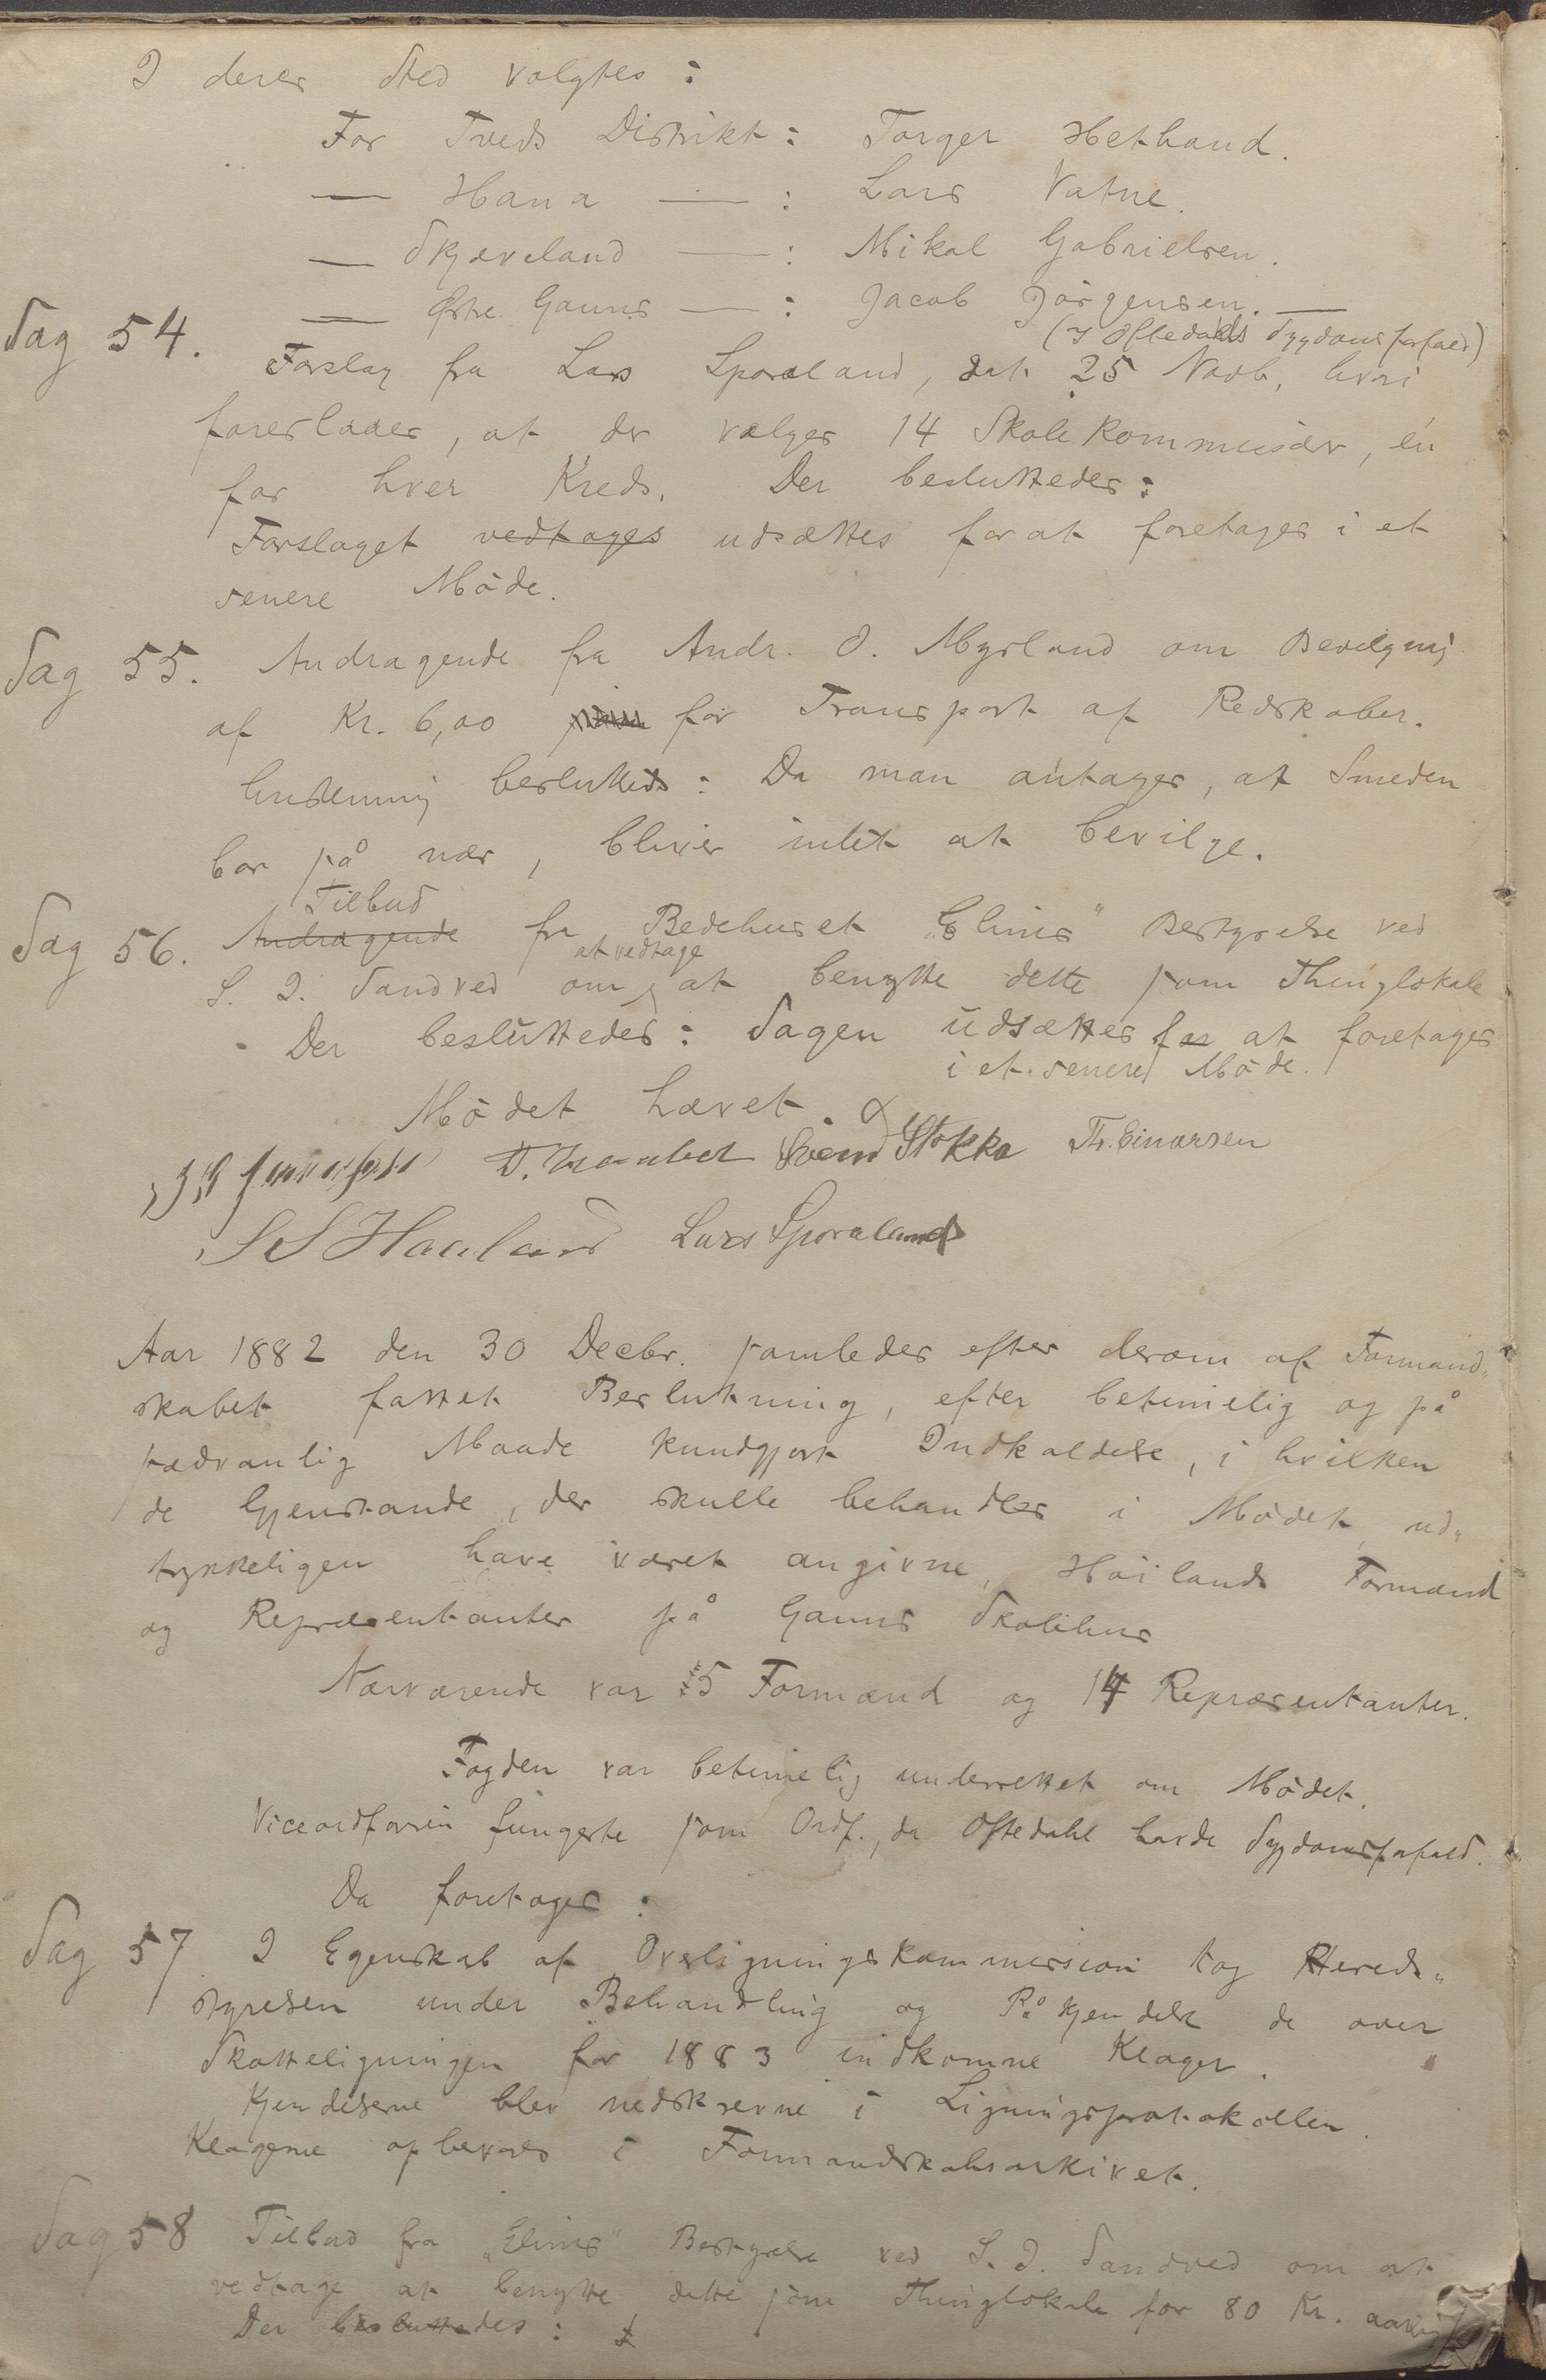 I deres Sted valgtes:
For Tveds Distrikt: Torger Hetland.
— Hana — : Lars Vatne.
— Skjæveland — : Mikal Gabrielsen.
— Østre Gauns — : Jacob Jörgensen. —
(I Oftedahls Sygdomsforfald)
Sag 54.
Forslag fra Lars Sporaland, dat. 25 Novb, hvori
foreslaaes, at der vælges 14 Skolekommisær, én
for hver Kreds. Der besluttedes:
Forslaget vedtages udsættes for at foretages i et
senere Möde.
Sag 55. Andragende fra Andr. O. Myrland om Bevilgning
af Kr. 6,00 for Transport af Redskaber.
besluttedes: Da man antager, at Smeden
bor på nær, bliver intet at bevilge.
Tilbud
Sag 56. Andragende fra Bedehuset „Elims" Bestyrelse ved
at vedtage
S. I. Sandved om at benytte dette som Thinglokale
Der besluttedes: Sagen udsættes for at foretages
i et senere Möde.
Mödet hævet.
Svend Stokka Th. Einarsen
S S Haaland Lars Sporaland
Aar 1882 den 30 Decbr. samledes efter derom af Formand„
skabet fattet Beslutning, efter betimelig og på
sædvanlig Maade kundgjort Indkaldelse, i hvilken
de Gjenstande, der skulle behandles i Mödet, ud„
trykkeligen have været angivne, Höilands Formænd
og Repræsentanter på Gauns Skolehus
Nærværende var 5 Formænd og 14 Repræsentanter.
Fogden var betimelig underrettet om Mödet.
Viceordföreren fungerte som Ordf., da Oftedahl havde Sygdomsforfald.
Da foretages:
Sag 57 I Egenskab af Overligningskommission tog Hereds„
styrelsen under Behandling og Påkjendelse de over
Skatteligningen for 1883 indkomne Klager.
Kjendelserne blev nedskrevne i Ligningsprotokollen.
Klagerne opbevares i Formandskabsarkivet.
Sag 58 Tilbud fra „Elims" Bestyrelse ved S. I. Sandved om at
vedtage at benytte dette som Thinglokale for 80 Kr. aarlig
Der besluttedes: